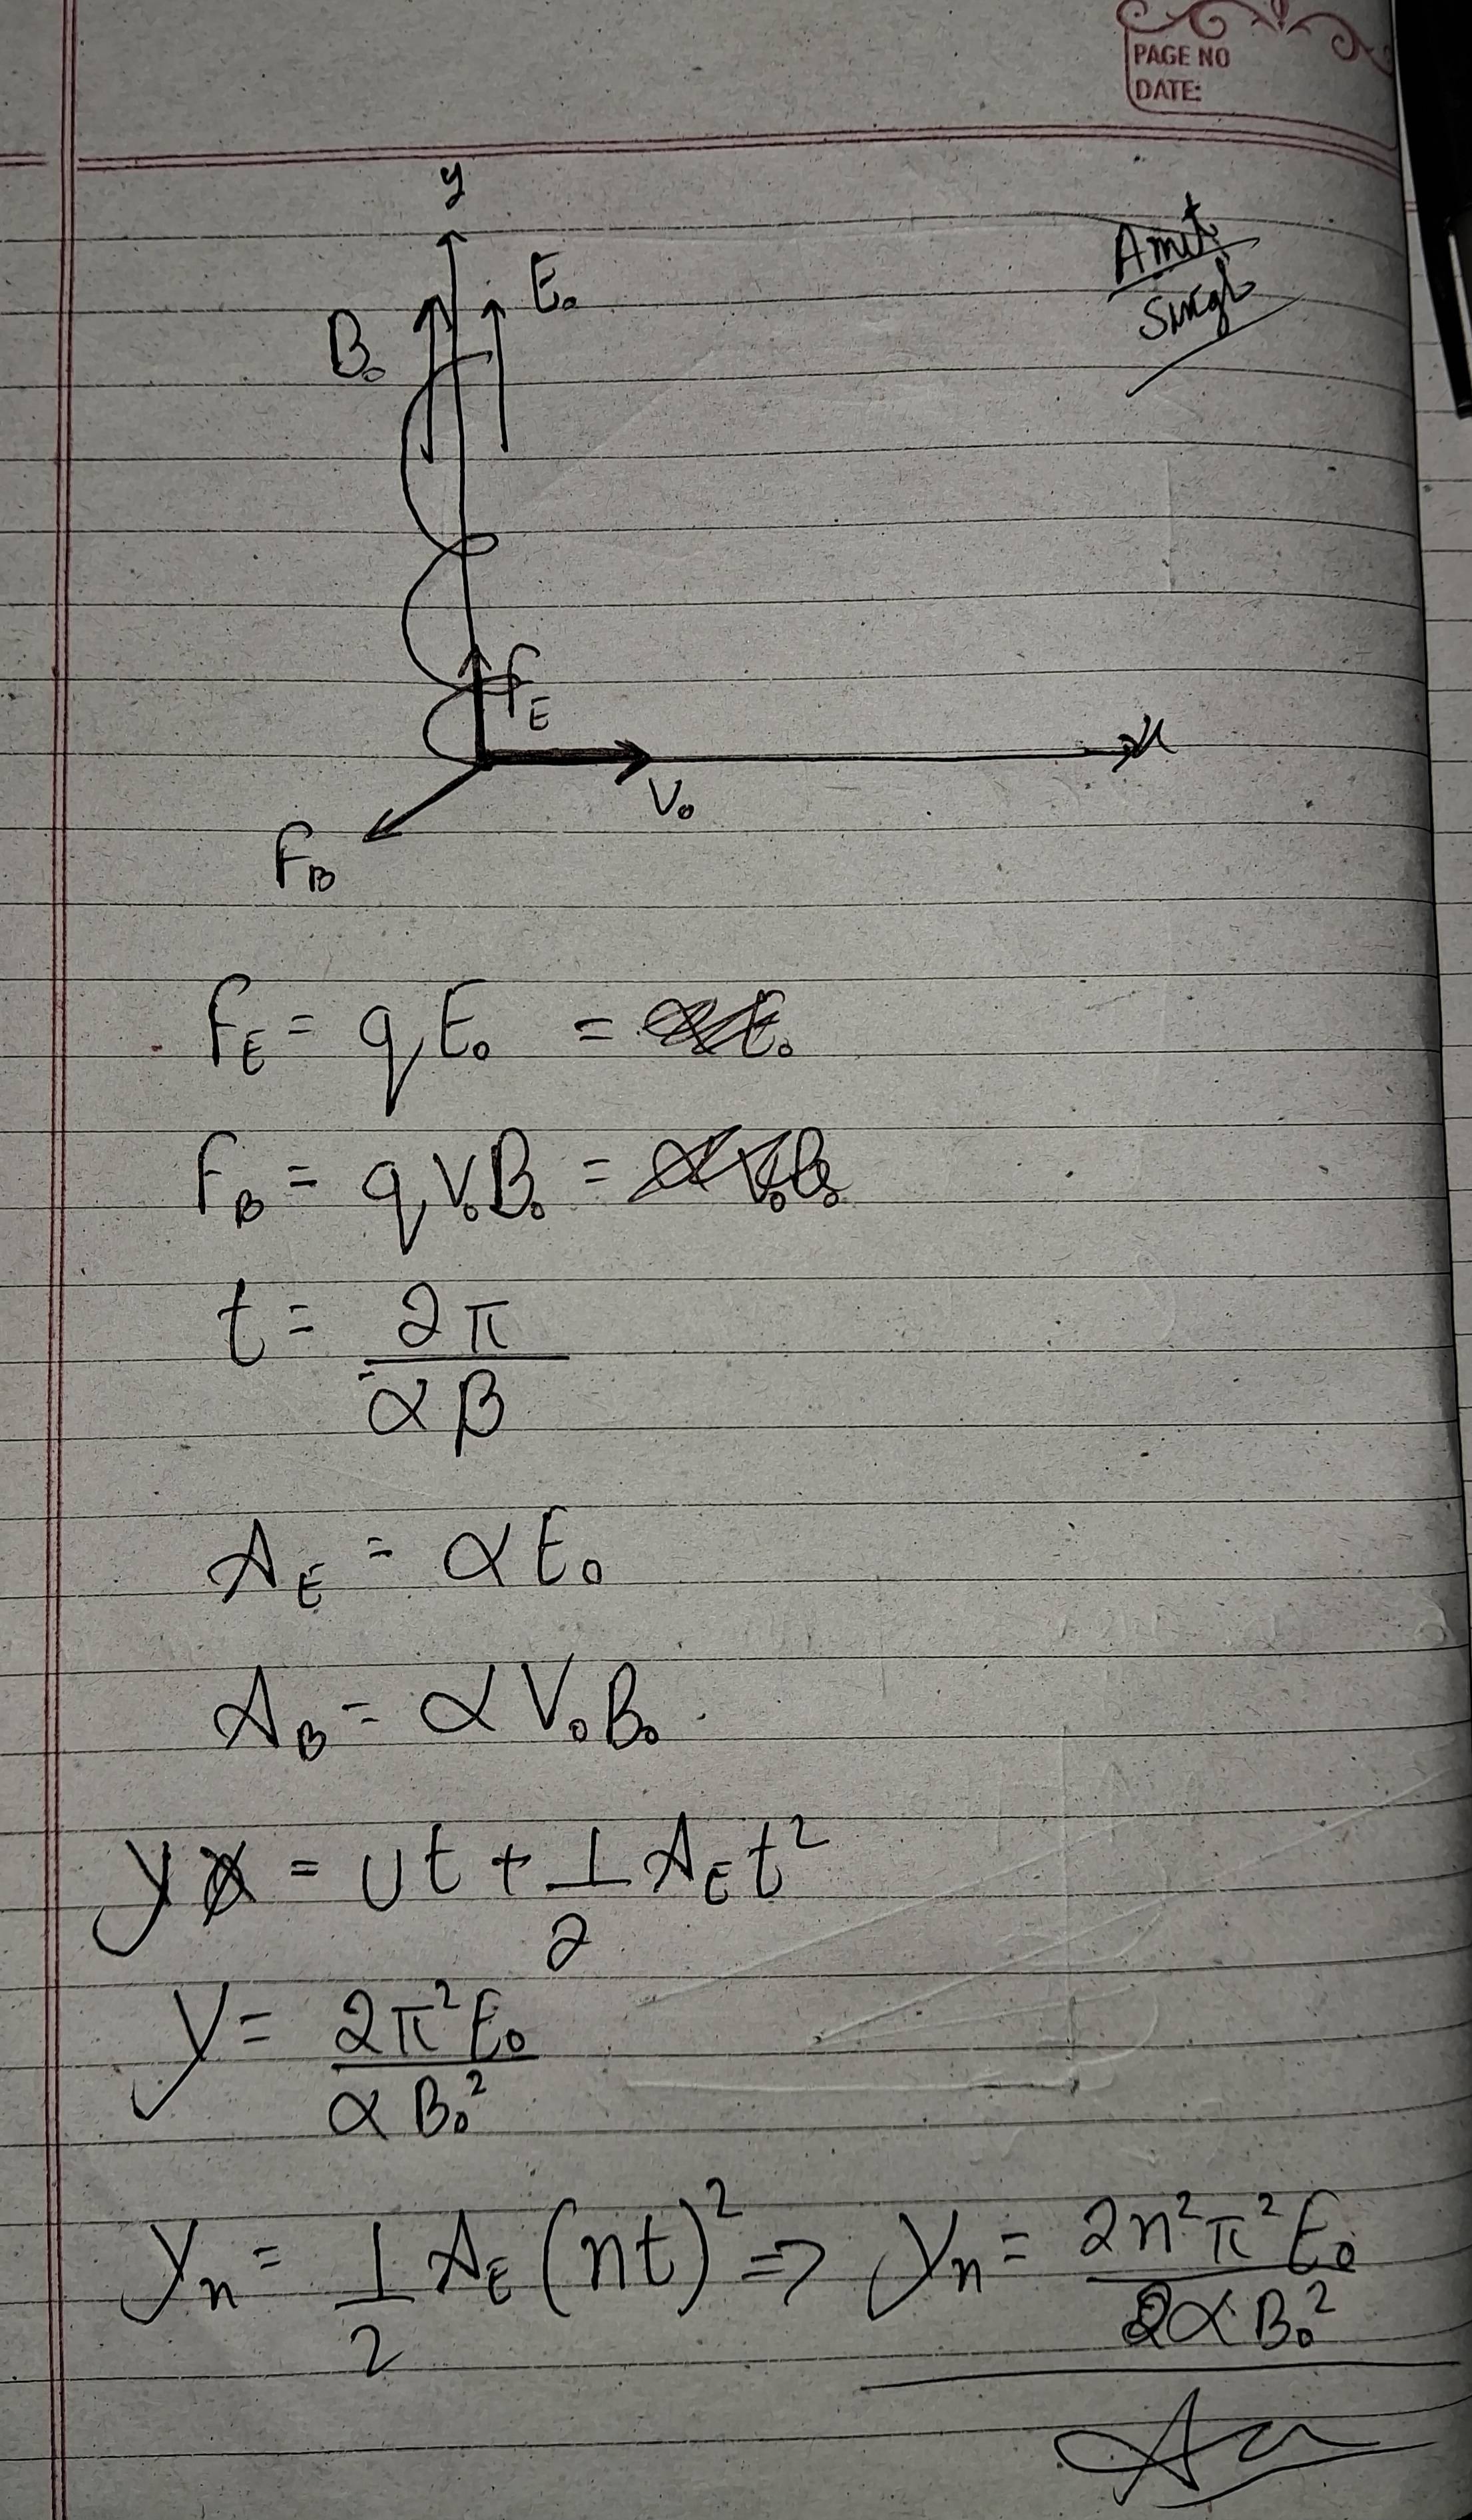 PAGE NO
DATE:
Amit
Singh
y
E₀
B₀
F_E
x
V₀
F_B
F_E = qE₀ =
F_B = qV₀B₀ =
t = 2π/αβ
A_E = αE₀
A_B = αV₀B₀
y = ut + 1/2 A_E t²
y = 2π²E₀/αB₀²
y_n = 1/2 A_E (nt)² ⇒ y_n = 2n²π²E₀/αB₀²